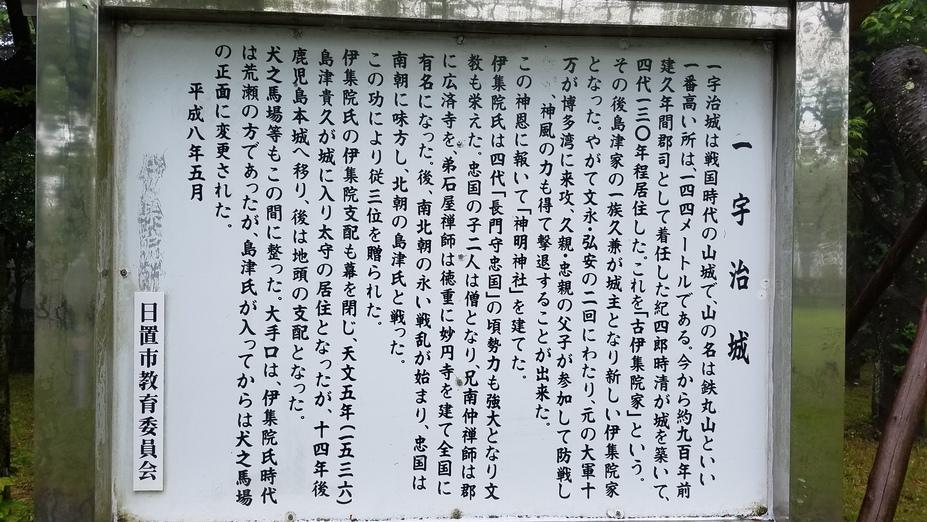 一宇治城
一宇治城は戦国時代の山城で、山の名は鉄丸山といい
一番高い所は、一四四メートルである。今から約九百年前
建久年間郡司として着任した紀四郎時清が城を築いて、
四代一三〇年程居住した。これを「古伊集院家」という。
その後島津家の一族久兼が城主となり新しい伊集院家
となった。やがて文永・弘安の二回にわたり、元の大軍十
万が博多湾に来攻、久親・忠親の父子が参加して防戦し
、神風の力も得て撃退することが出来た。
この神恩に報いて「神明神社」を建てた。
伊集院氏は四代「長門守忠国」の頃勢力も強大となり文
教も栄えた。忠国の子二人は僧となり、兄南仲禅師は郡
に広済寺を、弟石屋禅師は徳重に妙円寺を建て全国に
有名になった。後、南北朝の永い戦乱が始まり、忠国は
南朝に味方し、北朝の島津氏と戦った。
この功により従三位を贈られた。
伊集院氏の伊集院支配も幕を閉じ、天文五年(一五三六)
島津貴久が城に入り太守の居住となったが、十四年後
鹿児島本城へ移り、後は地頭の支配となった。
犬之馬場等もこの間に整った。大手口は、伊集院氏時代
は荒瀬の方であったが、島津氏が入ってからは犬之馬場
の正面に変更された。
平成八年五月
日置市教育委員会